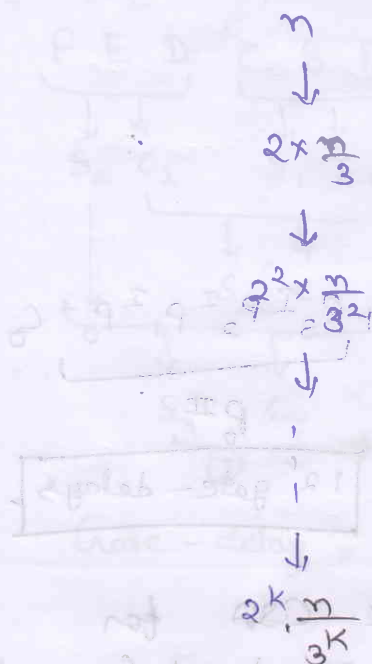 n
↓
2 × n/3
↓
2² × n/3²
↓
↓
2ᴷ · n/3ᴷ